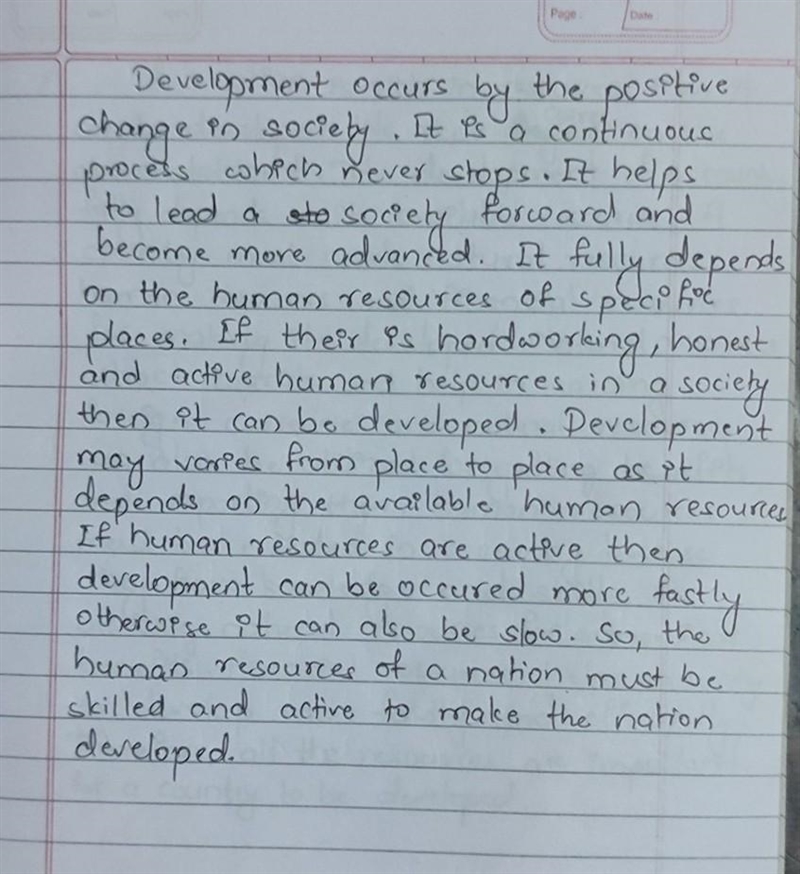 Page : Date :
Development occurs by the positive
change in society. It is a continuous
process which never stops. It helps
to lead a sto society forward and
become more advanced. It fully depends
on the human resources of specific
places. If their is hardworking, honest
and active human resources in a society
then it can be developed. Development
may varies from place to place as it
depends on the available human resources
If human resources are active then
development can be occured more fastly
otherwise it can also be slow. So, the
human resources of a nation must be
skilled and active to make the nation
developed.